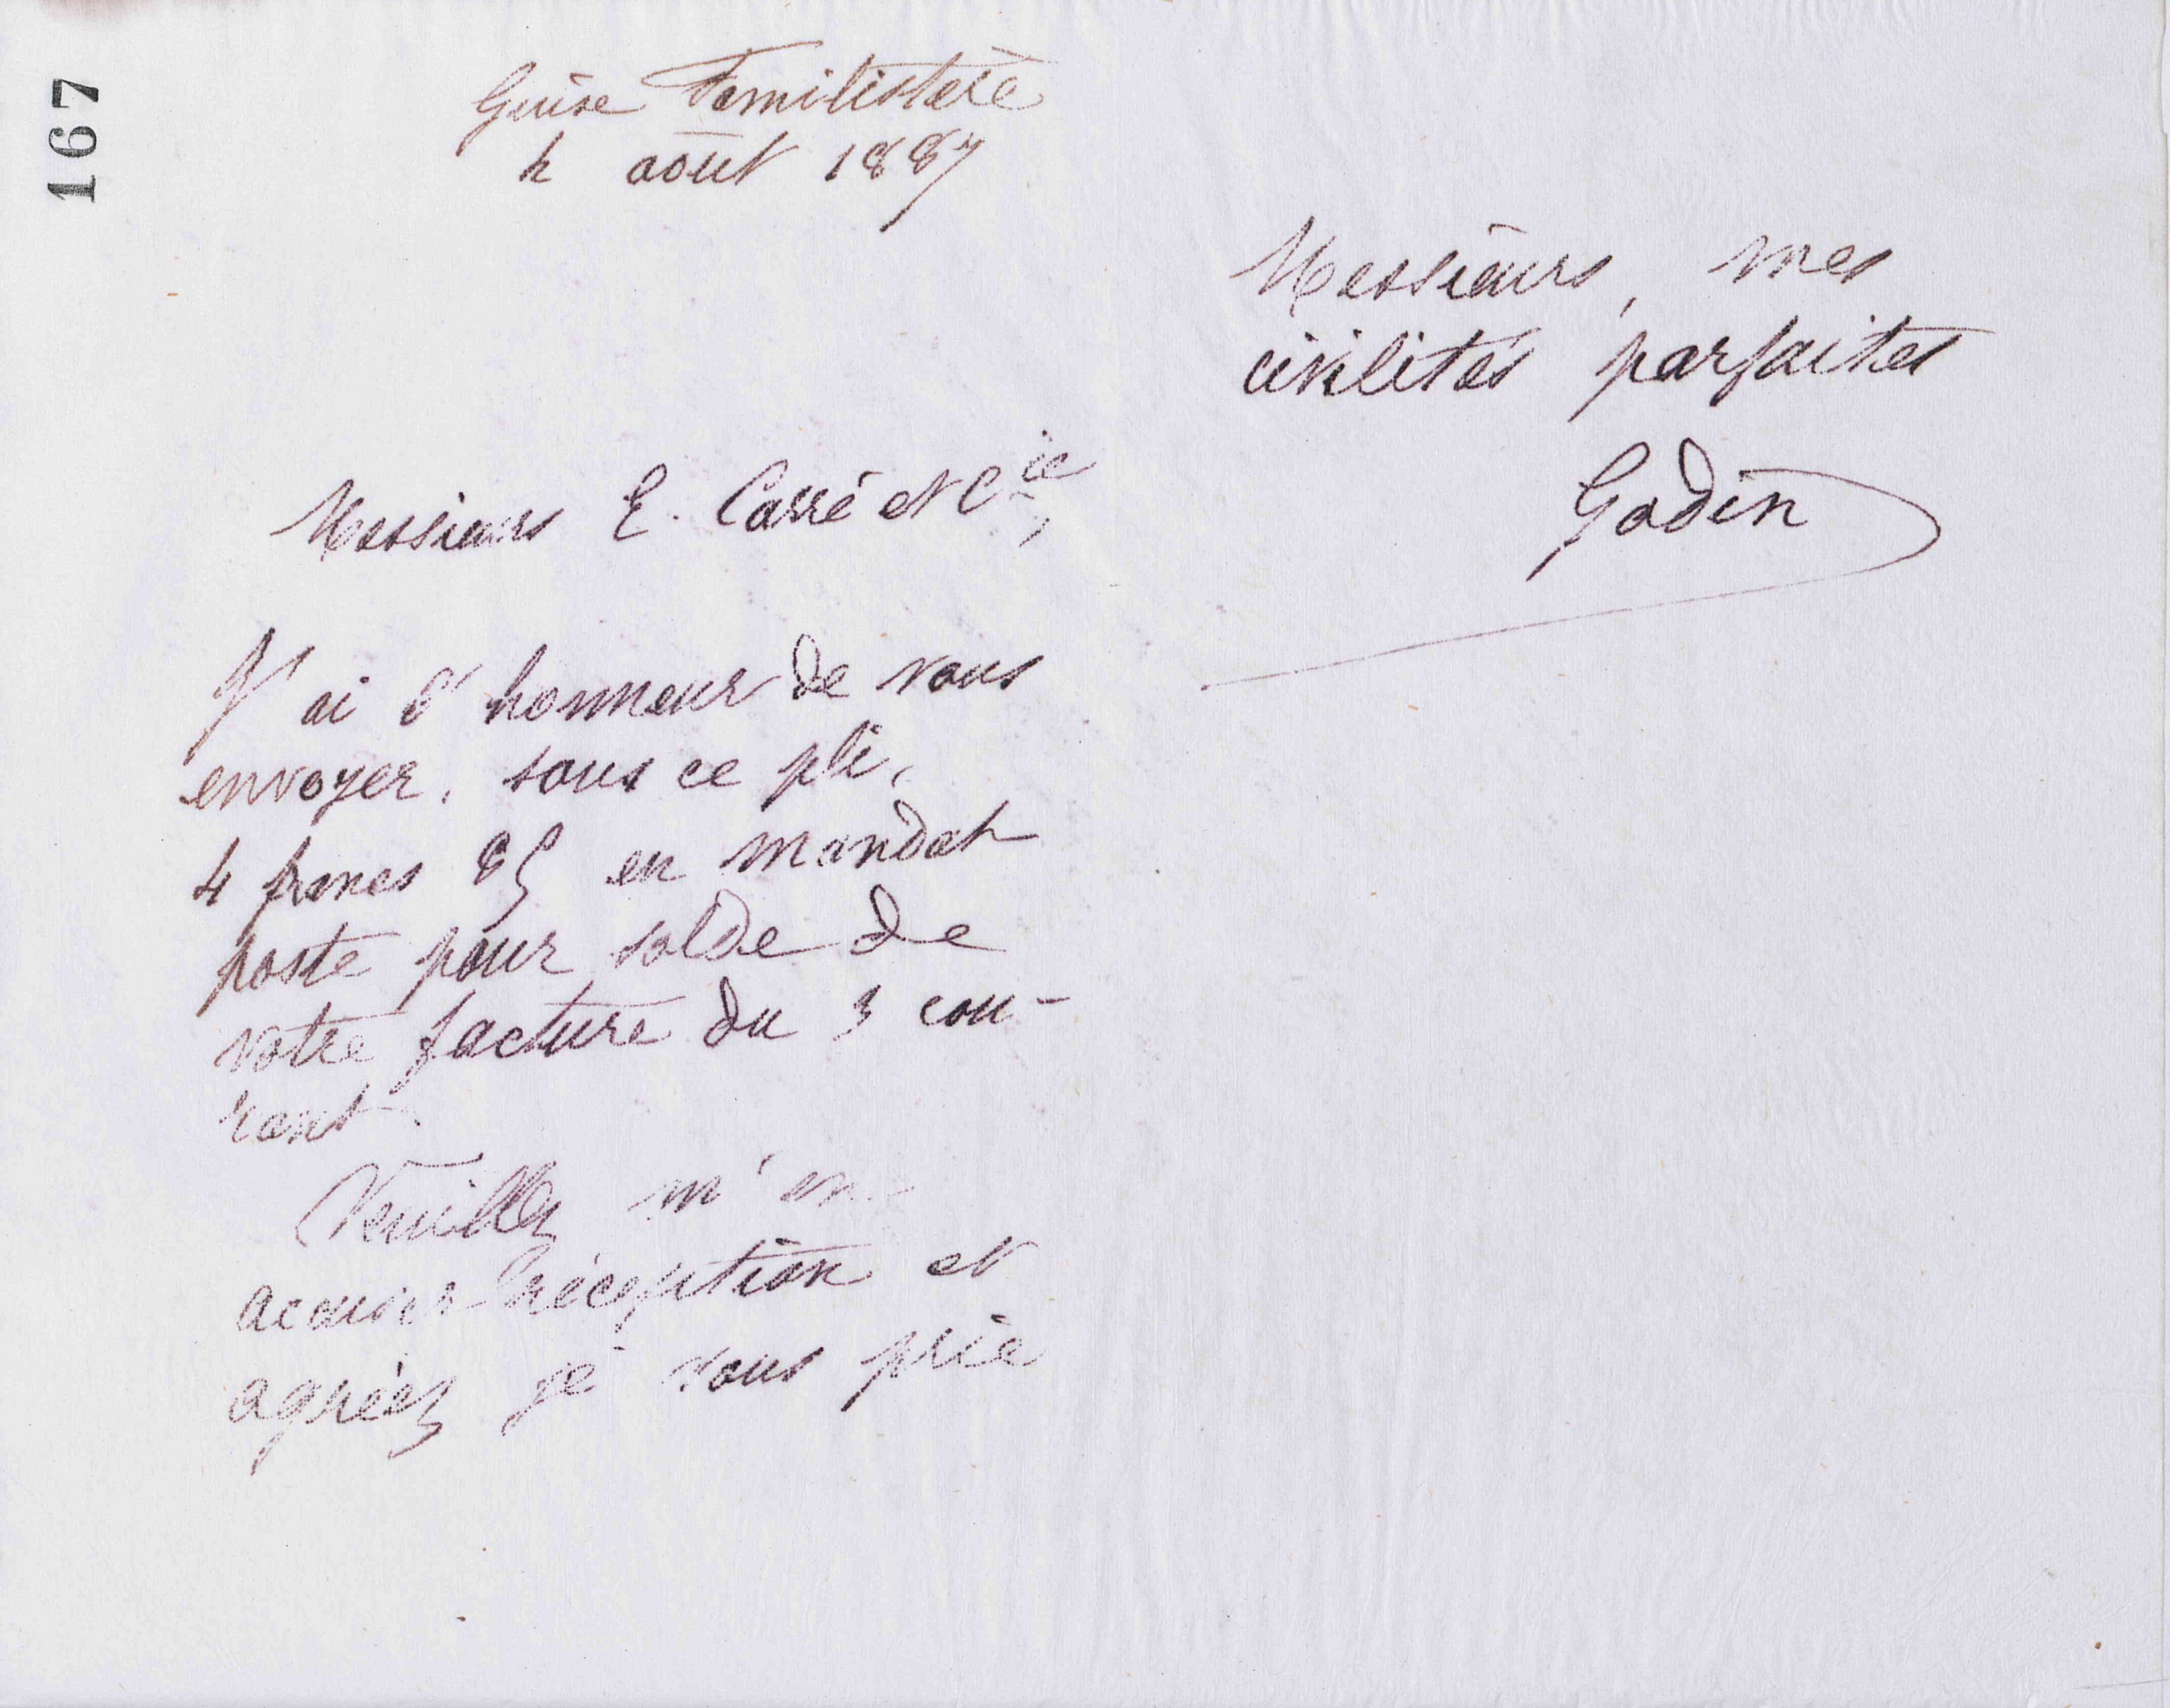 167
Guise Familistère
4 août 1887
Messieurs E. Carré et Cie,
J'ai l'honneur de vous
envoyer, sous ce pli,
4 francs 85 en mandat
poste pour solde de
votre facture du 3 cou-
rant.
Veuillez m'en
accuser réception et
agréez je vous prie
Messieurs, mes
civilités parfaites
Godin